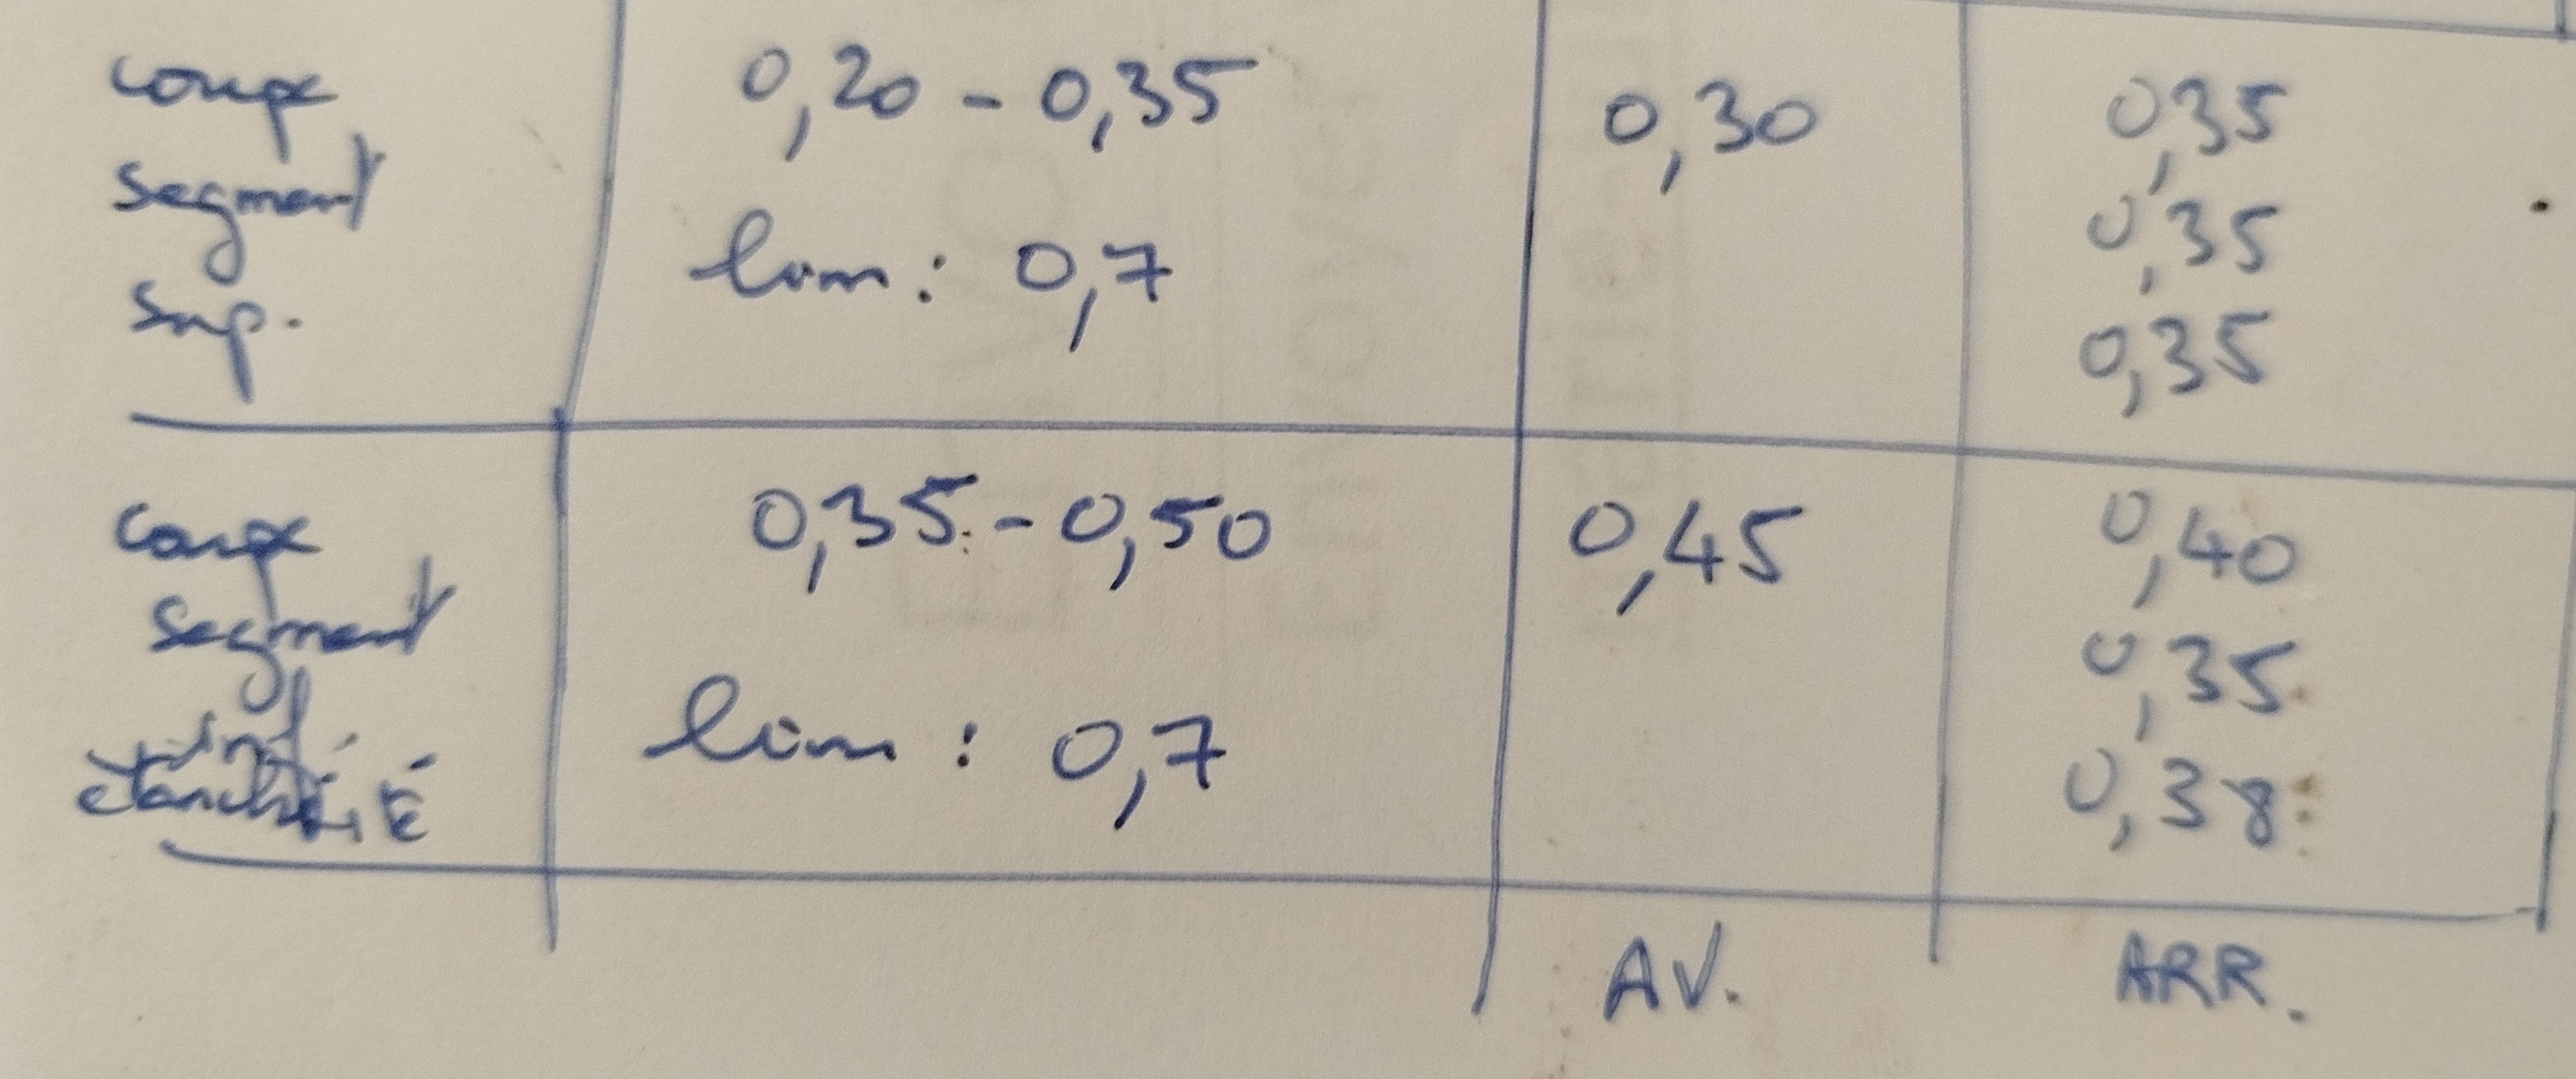 coupe 0,20 - 0,35 0,30 0,35
segment 0,35
sup. lim : 0,7 0,35
coupe 0,35 - 0,50 0,45 0,40
segment 0,35
inf lim : 0,7 0,38
étanchéité
AV. ARR.